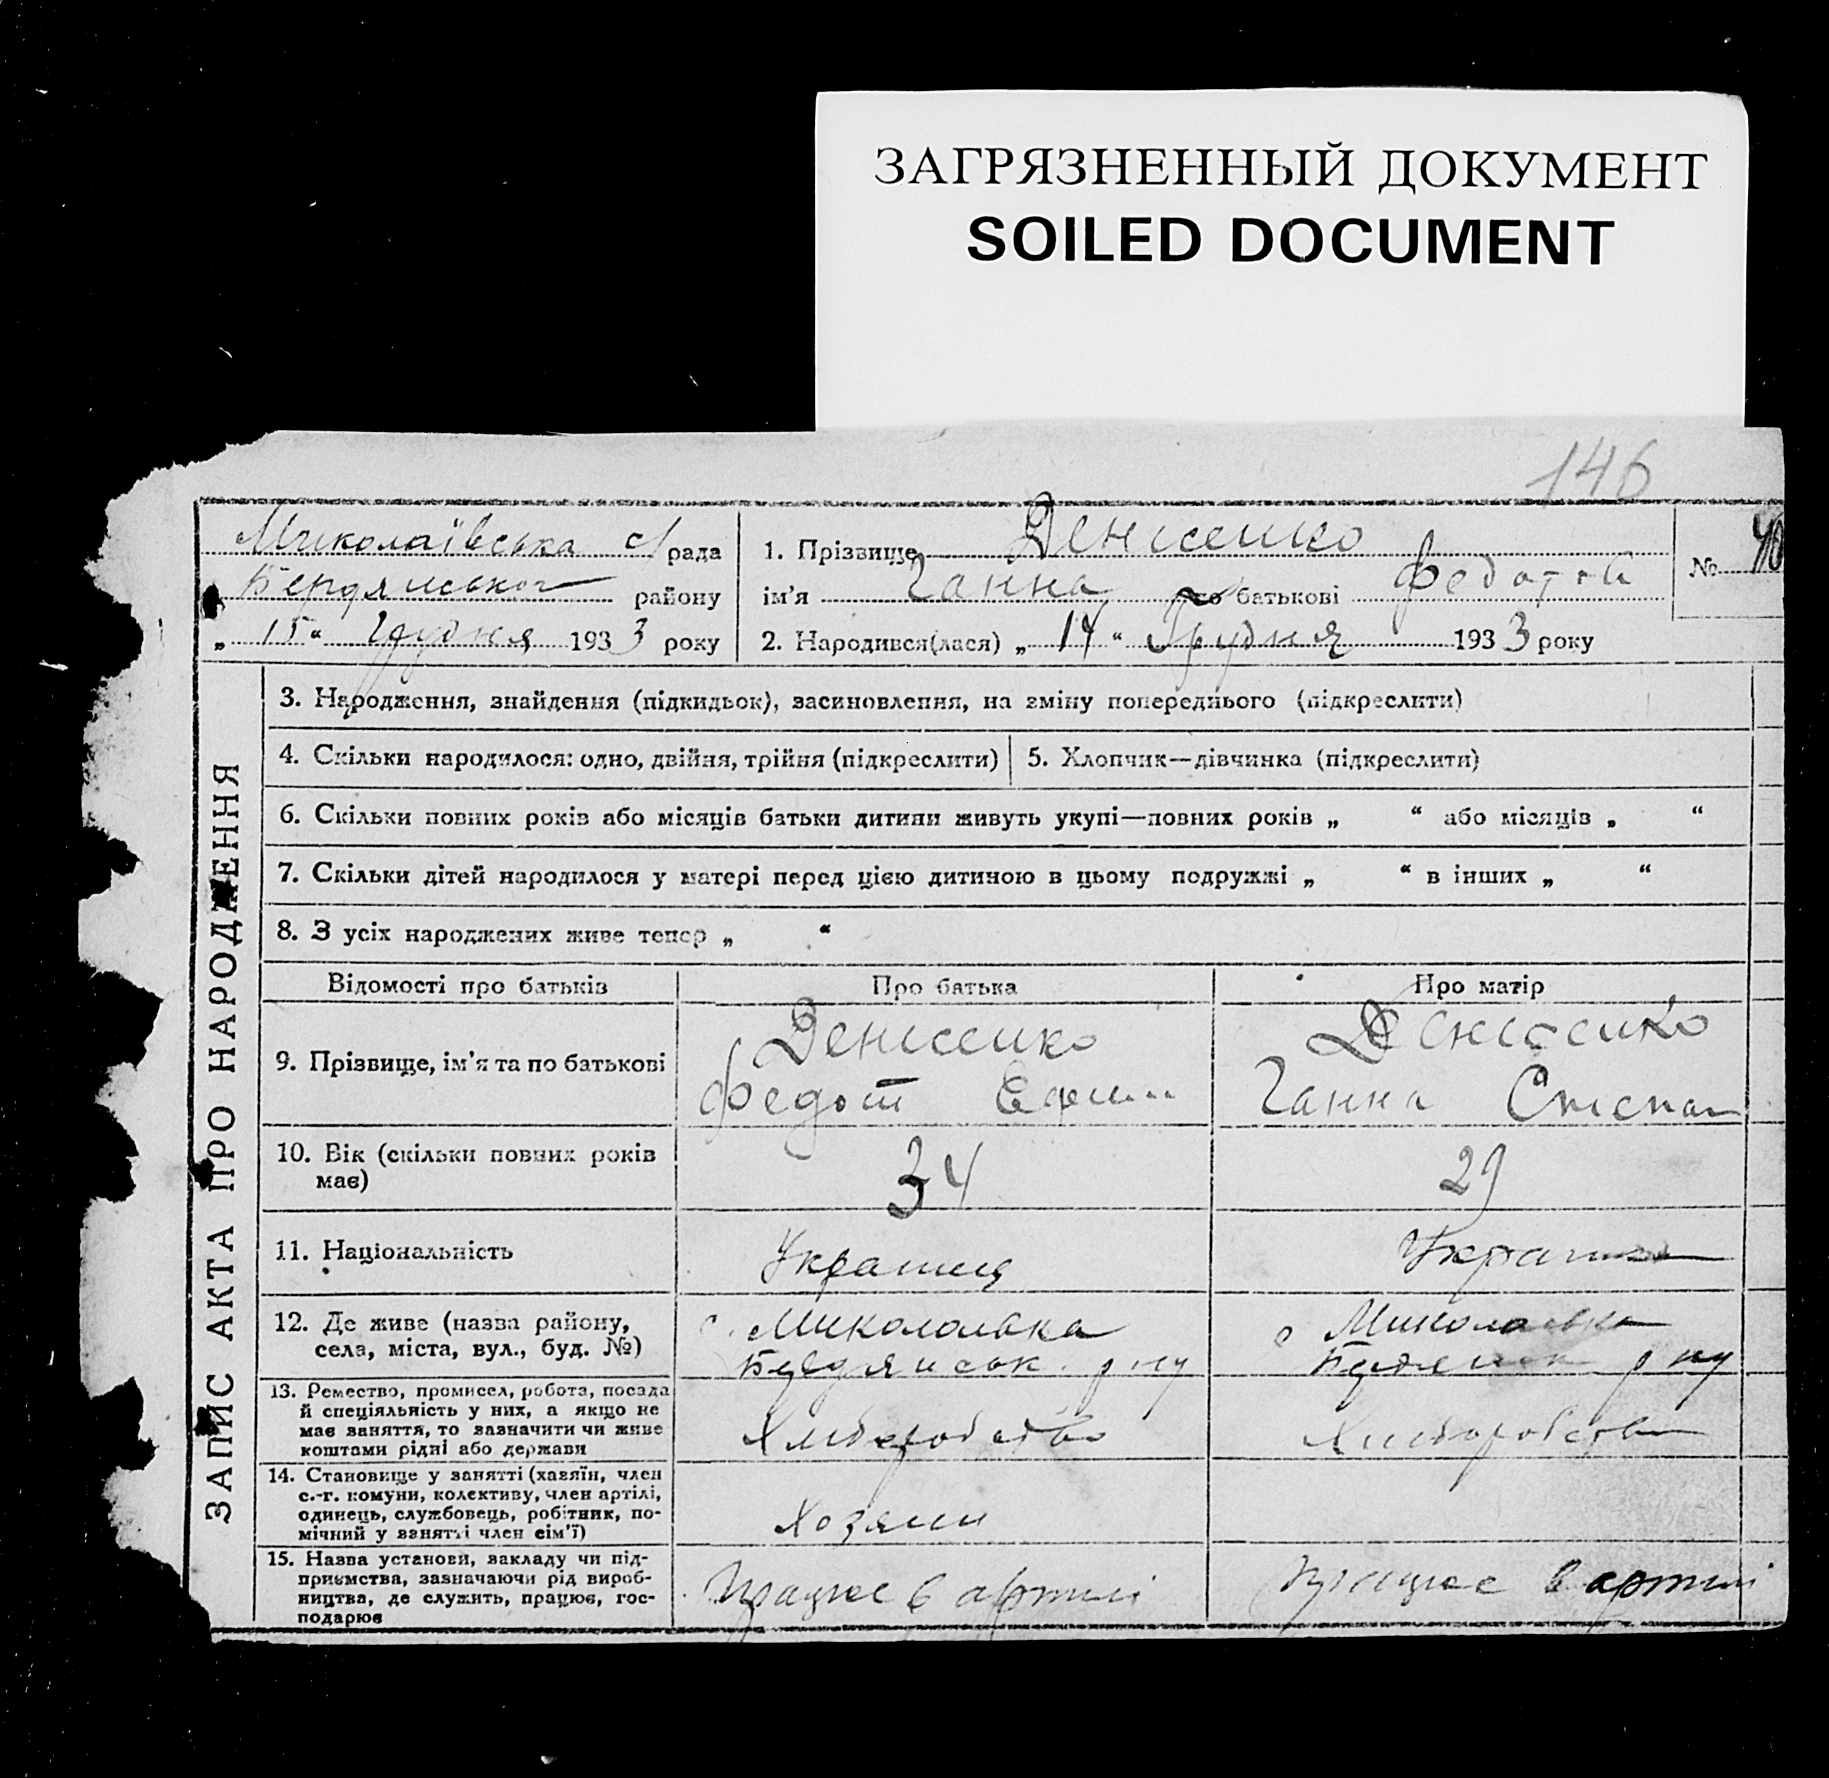 ЗАГРЯЗНЕННЫЙ ДОКУМЕНТ
SOILED DOCUMENT
146
Миколаївська с/рада
Бердянського району
„15“ Грудня 1933 року
1. Прізвище Денисенко
ім'я Ганна по батькові Федот
2. Народився(лася) „14“ Грудня 1933 року
№ 40
ЗАПИС АКТА ПРО НАРОДЖЕННЯ
3. Народження, знайдення (підкидьок), засиновлення, на зміну попереднього (підкреслити)
4. Скільки народилося: одно, двійня, трійня (підкреслити)
5. Хлопчик—дівчинка (підкреслити)
6. Скільки повних років або місяців батьки дитини живуть укупі—повних років „ “ або місяців „ “
7. Скільки дітей народилося у матері перед цією дитиною в цьому подружжі „ “ в інших „ “
8. З усіх народжених живе тепер „ “
Відомості про батьків Про батька Про матір
9. Прізвище, ім'я та по батькові
Денисенко
Федот Ефим
Денисенко
Ганна Степан
10. Вік (скільки повних років
має)
34
29
11. Національність
Украинц
Украин
12. Де живе (назва району,
села, міста, вул., буд. №)
с. Миколаівка
Бердянськ. р-ну
с Миколаівка
Бердянськ р-ну
13. Ремество, промисел, робота, посада
й спеціяльність у них, а якщо не
має заняття, то зазначити чи живе
коштами рідні або держави
Хліборобство
Хліборобство
14. Становище у занятті (хазяїн, член
с.-г. комуни, колективу, член артілі,
одинець, службовець, робітник, по-
мічний у занятті член сім'ї)
Хозяин
15. Назва установи, закладу чи під-
приємства, зазначаючи рід вироб-
ництва, де служить, працює, гос-
подарює
Працює в артилі
Працює в артилі